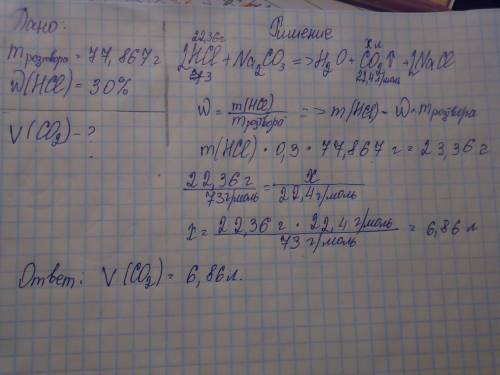 Дано:
m розтвора = 77,867 г
W(HCl) = 30%
V(CO₂) - ?
Ришение
22,36 г x л
2HCl + Na₂CO₃ => H₂O + CO₂↑ + 2NaCl
73 22,4 г/моль
W = m(HCl) / m розтвора => m(HCl) - W · m розтвора
m(HCl) · 0,3 · 77,867 г = 23,36 г
22,36 г / 73 г/моль = x / 22,4 г/моль
x = 22,36 г · 22,4 г/моль / 73 г/моль = 6,86 л
Ответ: V(CO₂) = 6,86 л.